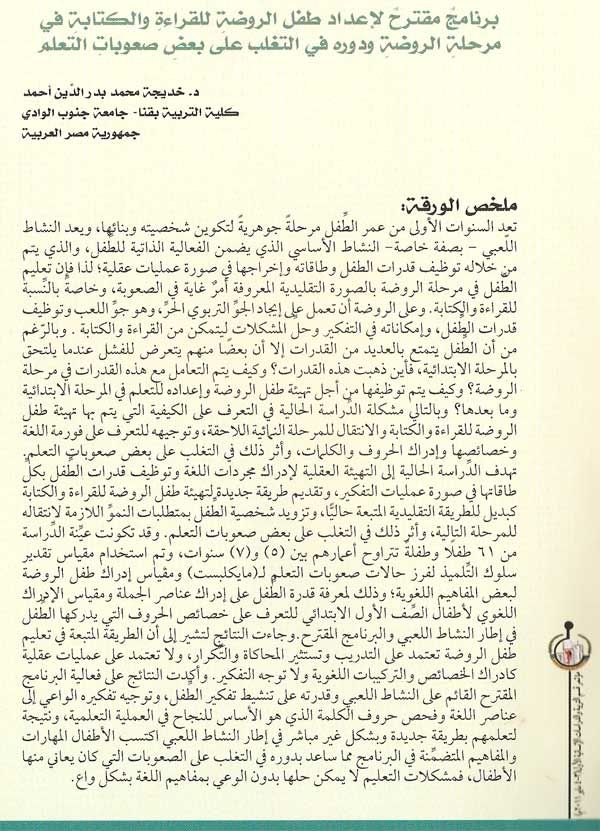 برنامجٌ مقترحٌ لإعداد طفل الروضةِ للقراءةِ والكتابةِ في
مرحلةِ الروضةِ ودوره في التغلب على بعضِ صعوباتِ التعلم
د. خديجة محمد بدر الدِّين أحمد
كلية التربية بقنا- جامعة جنوب الوادي
جمهورية مصر العربية
ملخص الورقة:
تعد السنوات الأولى من عمر الطِّفل مرحلةً جوهريةً لتكوين شخصيته وبنائها، ويعد النشاط
اللَّعبي – بصفة خاصة- النشاط الأساسي الذي يضمن الفعالية الذاتية للطِّفل، والذي يتم
من خلاله توظيف قدرات الطفل وطاقاته وإخراجها في صورة عمليات عقلية؛ لذا فإن تعليم
الطِّفل في مرحلة الروضة بالصورة التقليدية المعروفة أمرٌ غاية في الصعوبة، وخاصةً بالنِّسبة
للقراءة والكتابة. وعلى الروضة أن تعمل على إيجاد الجوِّ التربوي الحرِّ، وهو جوِّ اللعب وتوظيف
قدرات الطِّفل، وإمكاناته في التفكير وحلِّ المشكلات ليتمكن من القراءة والكتابة . وبالرّغم
من أن الطِّفل يتمتع بالعديد من القدرات إلا أن بعضًا منهم يتعرض للفشل عندما يلتحق
بالمرحلة الابتدائية، فأين ذهبت هذه القدرات؟ وكيف يتم التعامل مع هذه القدرات في مرحلة
الروضة؟ وكيف يتم توظيفها من أجل تهيئة طفل الروضة وإعداده للتعلم في المرحلة الابتدائية
وما بعدها؟ وبالتالي مشكلة الدِّراسة الحالية في التعرف على الكيفية التي يتم بها تهيئة طفل
الروضة للقراءة والكتابة والانتقال للمرحلة النمائية اللاحقة، وتوجيهه للتعرف على فورمة اللغة
وخصائصها وإدراك الحروف والكلمات، وأثر ذلك في التغلب على بعض صعوبات التعلم.
تهدف الدِّراسة الحالية إلى التهيئة العقلية لإدراك مجردات اللغة وتوظيف قدرات الطِّفل بكلِّ
طاقاتها في صورة عمليات التفكير، وتقديم طريقة جديدة لتهيئة طفل الروضة للقراءة والكتابة
كبديل للطريقة التقليدية المتبعة حاليًّا، وتزويد شخصية الطِّفل بمتطلبات النموِّ اللازمة لانتقاله
للمرحلة التالية، وأثر ذلك في التغلب على بعض صعوبات التعلم. وقد تكونت عيِّنة الدِّراسة
من ٦١ طفلًا وطفلةً تتراوح أعمارهم بين (٥) و(٧) سنوات، وتم استخدام مقياس تقدير
سلوك التِّلميذ لفرز حالات صعوبات التعلم لـ(مايكلبست) ومقياس إدراك طفل الروضة
لبعض المفاهيم اللغوية؛ وذلك لمعرفة قدرة الطِّفل على إدراك عناصر الجملة ومقياس الإدراك
اللغوي لأطفال الصِّف الأول الابتدائي للتعرف على خصائص الحروف التي يدركها الطِّفل
في إطار النشاط اللعبي والبرنامج المقترح. وجاءت النتائج لتشير إلى أن الطريقة المتبعة في تعليم
طفل الروضة تعتمد على التدريب وتستثير المحاكاة والتِّكرار، ولا تعتمد على عمليات عقلية
كإدراك الخصائص والتركيبات اللغوية ولا توجه التفكير. وأكدت النتائج على فعالية البرنامج
المقترح القائم على النشاط اللعبي وقدرته على تنشيط تفكير الطِّفل، وتوجيه تفكيره الواعي إلى
عناصر اللغة وفحص حروف الكلمة الذي هو الأساس للنجاح في العملية التعلمية، ونتيجة
لتعلمهم بطريقة جديدة وبشكل غير مباشر في إطار النشاط اللعبي اكتسب الأطفال المهارات
والمفاهيم المتضمِّنة في البرنامج مما ساعد بدوره في التغلب على الصعوبات التي كان يعاني منها
الأطفال، فمشكلات التعليم لا يمكن حلها بدون الوعي بمفاهيم اللغة بشكل واعٍ.